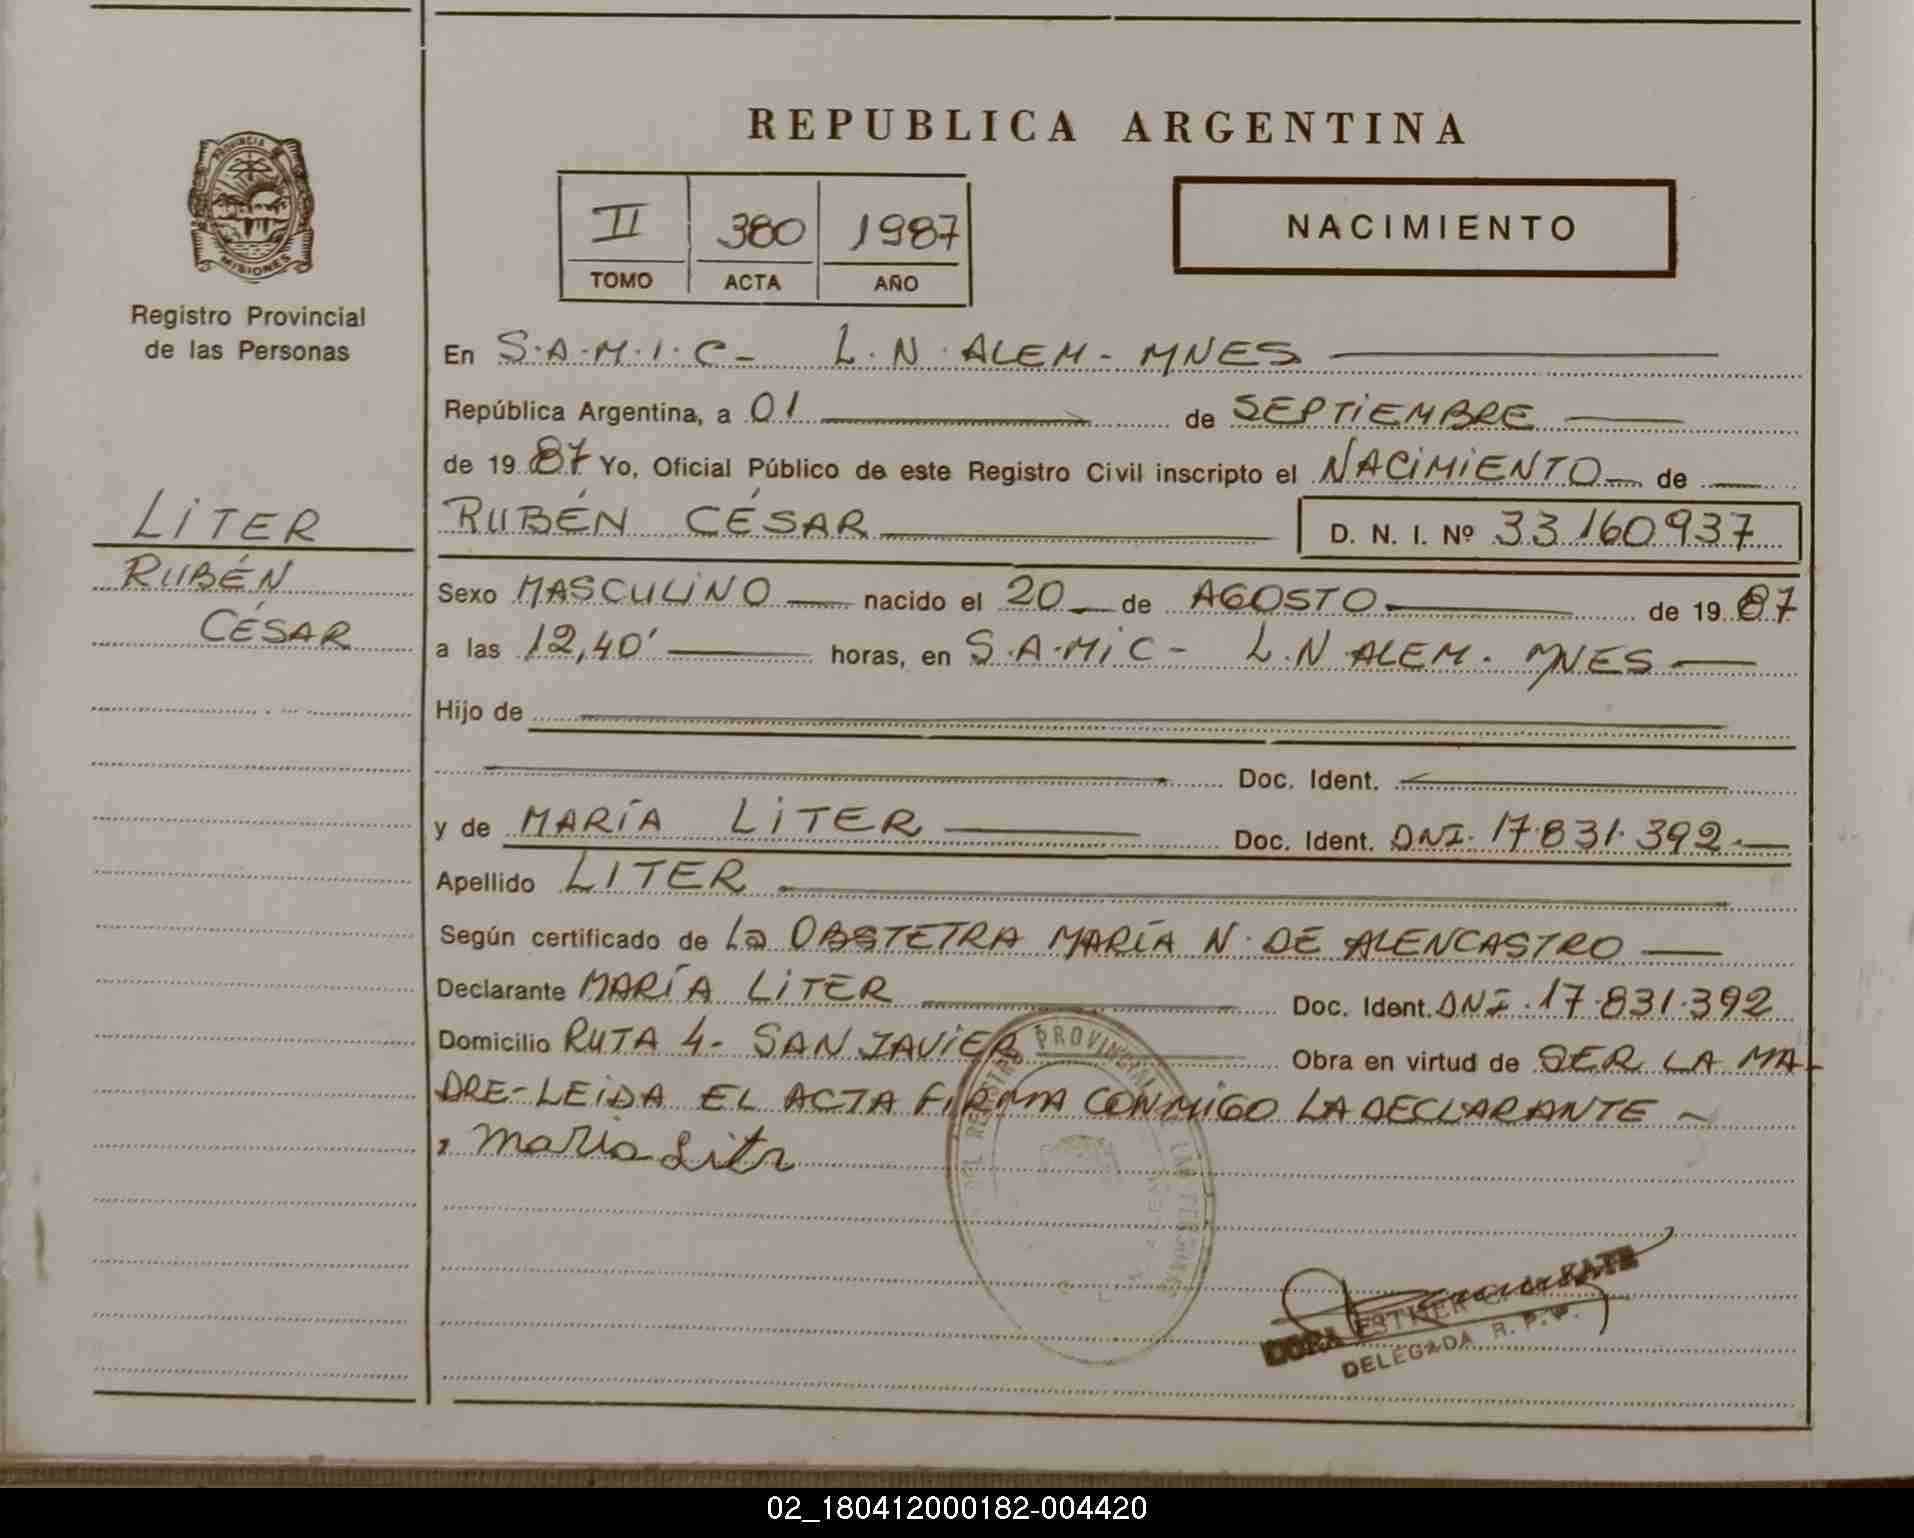 REPUBLICA ARGENTINA
PROVINCIA DE
MISIONES
Registro Provincial
de las Personas
II 380 1987
TOMO ACTA AÑO
NACIMIENTO
En S.A.M.I.C- L.N. ALEM- MNES
República Argentina, a 01 de SEPTIEMBRE
de 1987 Yo, Oficial Público de este Registro Civil inscripto el NACIMIENTO de
LITER
RUBÉN
CÉSAR
RUBÉN CÉSAR D. N. I. Nº 33160937
Sexo MASCULINO nacido el 20 de AGOSTO de 1987
a las 12,40' horas, en S.A.MIC- L.N ALEM. MNES
Hijo de
Doc. Ident.
y de MARÍA LITER Doc. Ident. DNI. 17.831.392.
Apellido LITER
Según certificado de La OBSTETRA MARÍA N. DE ALENCASTRO
Declarante MARÍA LITER Doc. Ident. DNI. 17.831.392
Domicilio RUTA 4- SAN JAVIER Obra en virtud de SER LA MA-
DRE-LEIDA EL ACTA FIRMA CONMIGO LA DECLARANTE
Maria Liter
PROVINCIAL LAS PERSONAS
DORA ESTHER C. de KATZ
DELEGADA R. P. P.
02_180412000182-004420